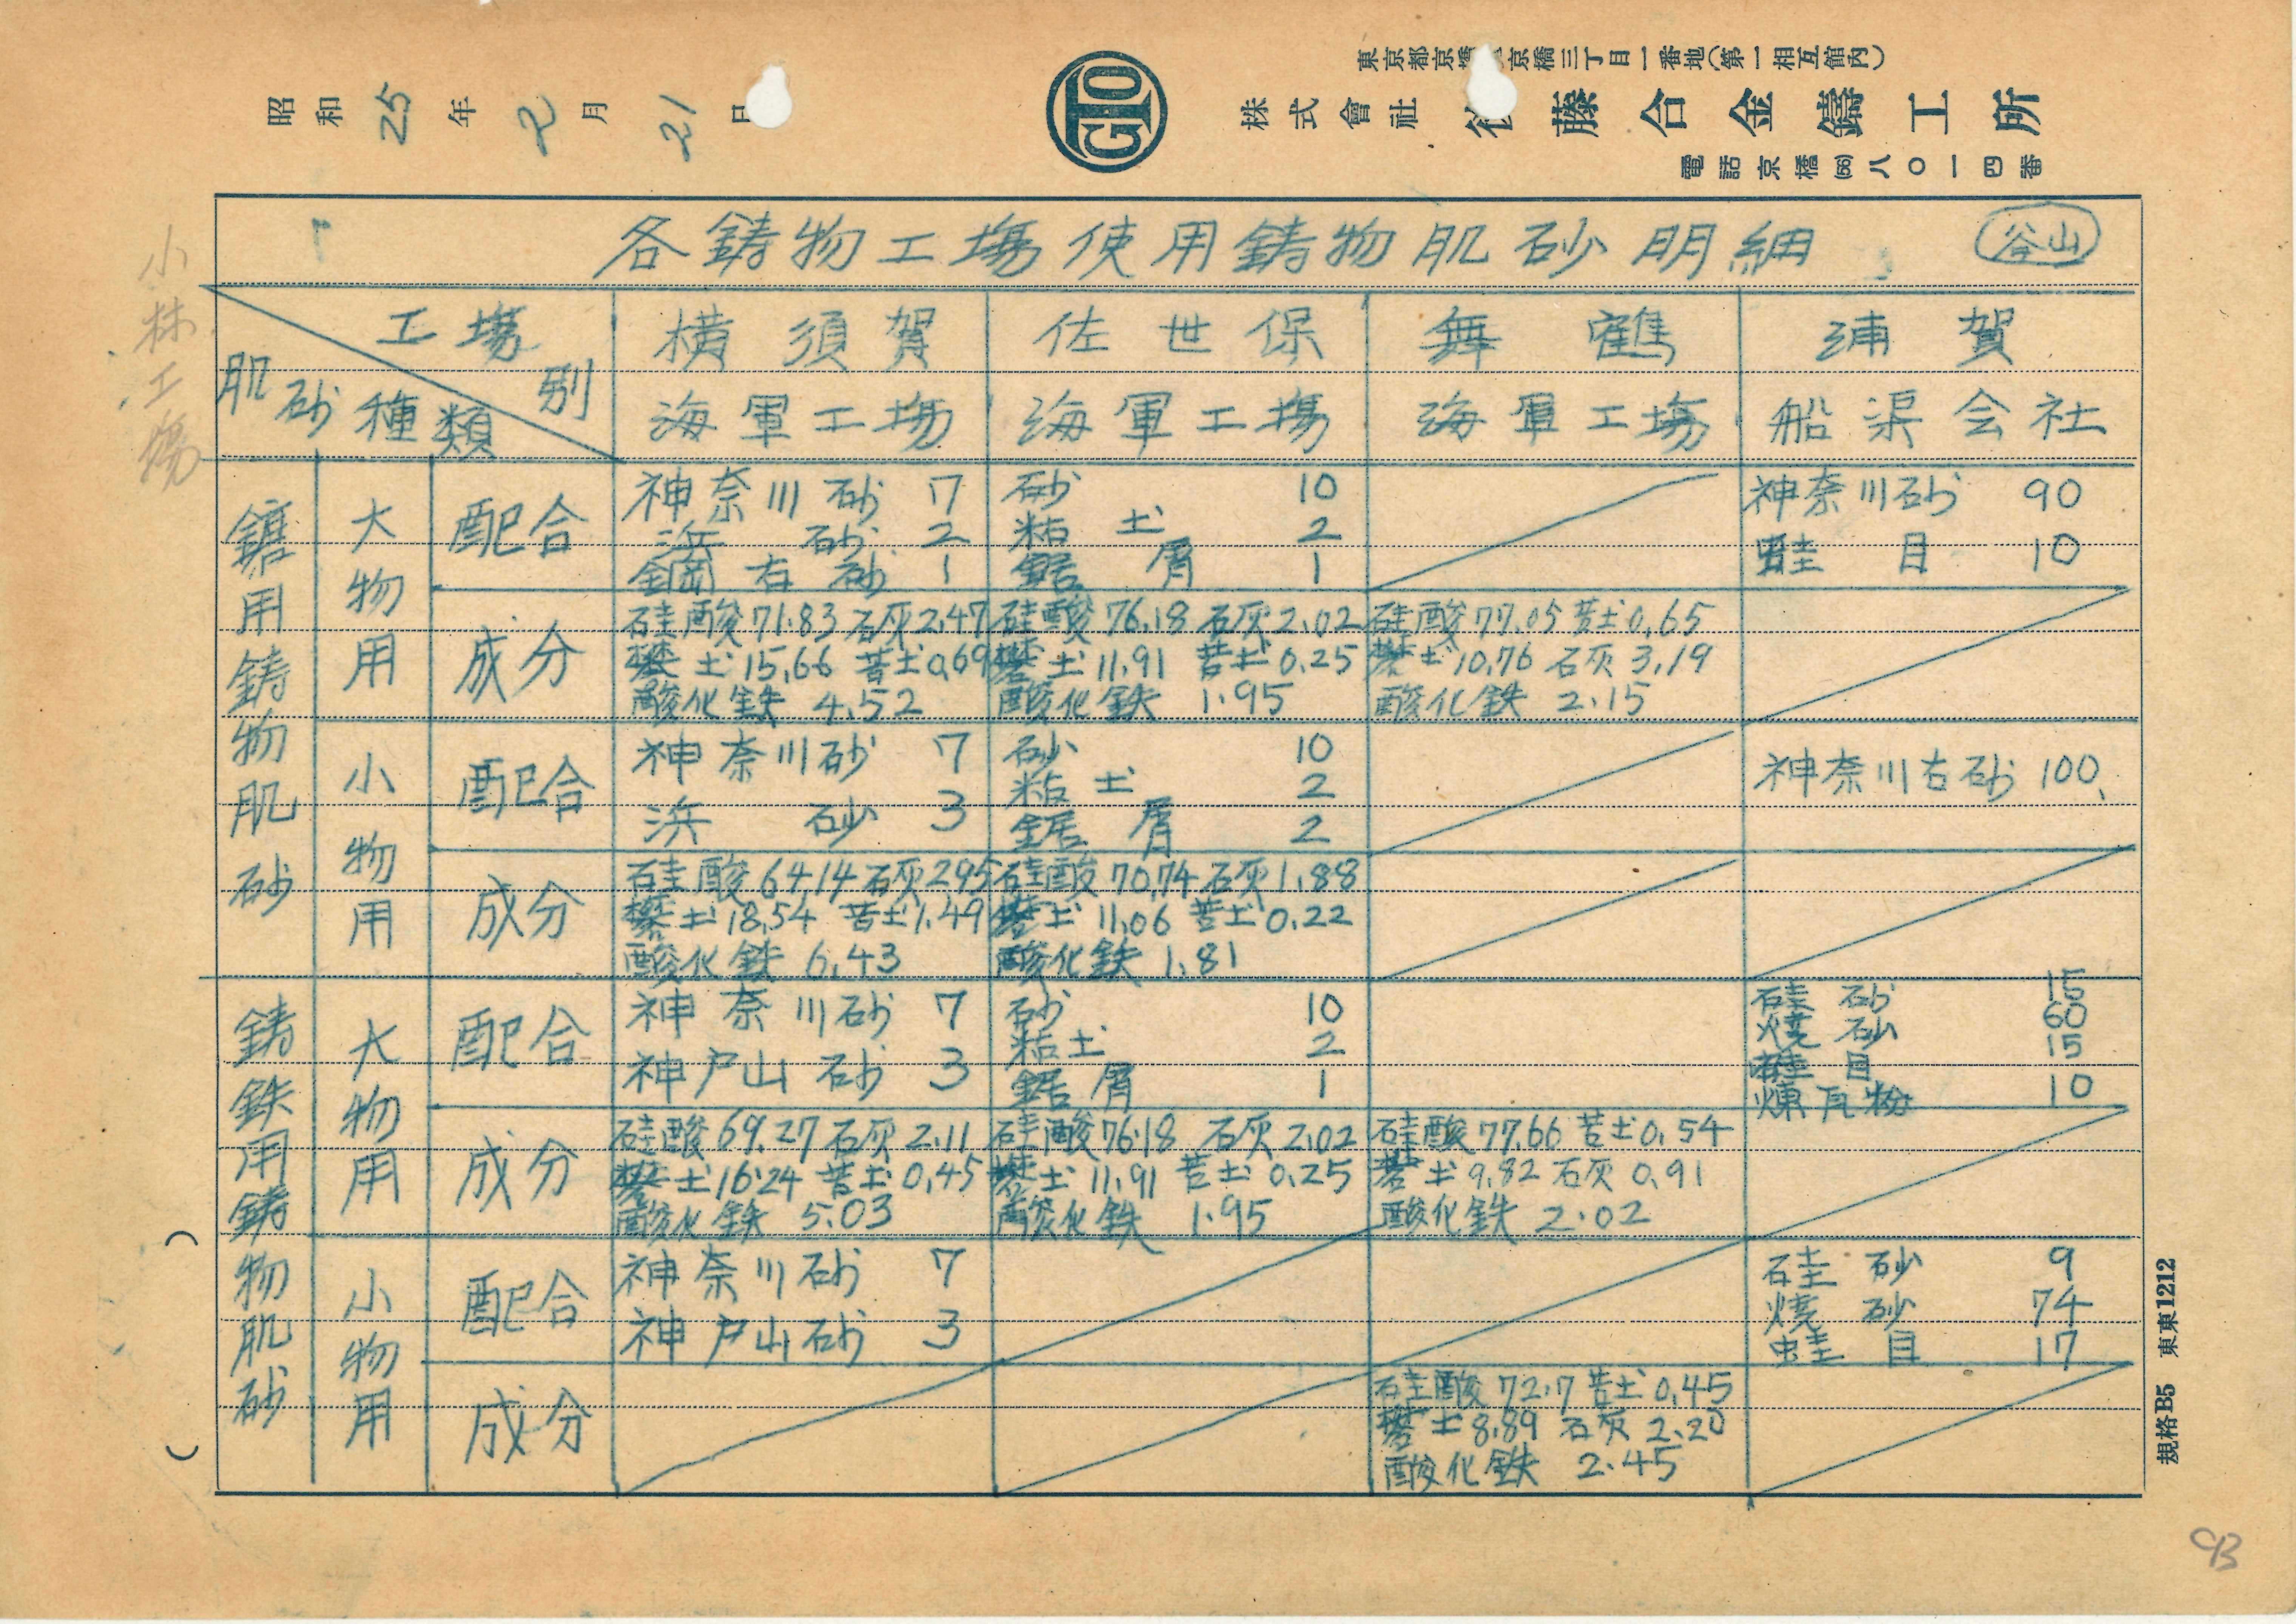 昭和25年2月21日
GTO
東京都京橋 京橋三丁目一番地(第一相互館内)
株式會社 後藤合金鑄工所
電話京橋(56)八〇一四番
小林工場
各鋳物工場使用鋳物肌砂明細 谷山
工場別
肌砂種類
横須賀 海軍工場
佐世保 海軍工場
舞鶴 海軍工場
浦賀 船渠会社
用鋳物肌砂
大物用
配合
神奈川砂 7
浜砂 2
砂 1
砂 10
粘土 2
鋸屑 1
神奈川砂 90
蛙目 10
成分
硅酸71.83 石灰2.47
礬土15.66 苦土0.69
酸化鉄 4.52
硅酸76.18 石灰2.02
礬土11.91 苦土0.25
酸化鉄 1.95
硅酸77.05 苦土0.65
礬土10.76 石灰3.19
酸化鉄 2.15
小物用
配合
神奈川砂 7
浜砂 3
砂 10
粘土 2
鋸屑 2
神奈川右砂 100
成分
硅酸64.14 石灰2.95
礬土18.54 苦土1.49
酸化鉄 6.43
硅酸70.74 石灰1.88
礬土11.06 苦土0.22
酸化鉄 1.81
鋳鉄用鋳物肌砂
大物用
配合
神奈川砂 7
神戸山砂 3
砂 10
粘土 2
鋸屑 1
硅砂 15
焼砂 60
蛙目 15
煉瓦粉 10
成分
硅酸69.27 石灰2.11
礬土16.24 苦土0.45
酸化鉄 5.03
硅酸76.18 石灰2.02
礬土11.91 苦土0.25
酸化鉄 1.95
硅酸77.66 苦土0.54
礬土9.82 石灰0.91
酸化鉄 2.02
小物用
配合
神奈川砂 7
神戸山砂 3
硅砂 9
焼砂 74
蛙目 17
成分
硅酸72.7 苦土0.45
礬土8.89 石灰2.20
酸化鉄 2.45
規格B5 東東1212
93